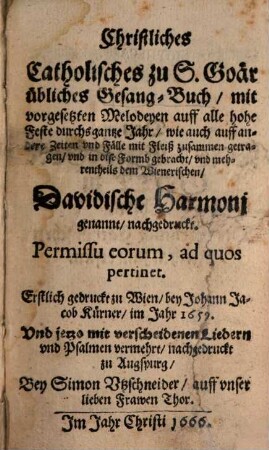 Christliches
Catholisches zu S. Goär
übliches Gesang-Buch / mit
vorgesetzten Melodeyen auff alle hohe
Feste durchs gantze Jahr / wie auch auff an-
dere Zeiten vnd Fälle mit Fleiß zusammen getra-
gen / vnd in dise Formb gebracht / vnd meh-
rentheils dem Wienerischen /
Davidische Harmonj
genannt / nachgedruckt.
Permissu eorum, ad quos
pertinet.
Erstlich gedruckt zu Wien / bey Johann Ja-
cob Kürner / im Jahr 1659.
Vnd jetzo mit verscheidenen Liedern
vnd Psalmen vermehrt / nachgedruckt
zu Augspurg /
Bey Simon Vtzschneider / auff vnser
lieben Frawen Thor.
Im Jahr Christi 1666.